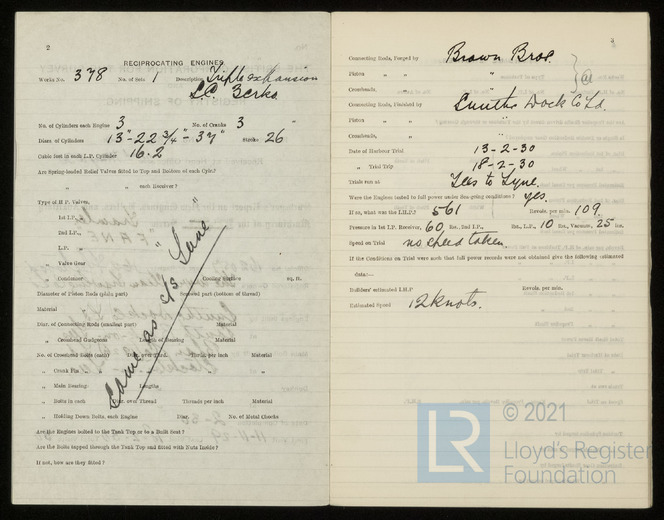 2
RECIPROCATING ENGINES.
Works No. 378 No. of Sets 1 Description Triple expansion
No. of Cylinders each Engine 3 No. of Cranks 3
Diars. of Cylinders 13" - 22 3/4" - 37" Stroke 26"
Cubic feet in each L.P. Cylinder 16.2
Are Spring-loaded Relief Valves fitted to Top and Bottom of each Cylr.?
„ „ each Receiver?
Type of H.P. Valves,
1st I.P.,
2nd I.P.,
L.P. „
„ Valve Gear
„ Condenser Cooling surface sq. ft.
Diameter of Piston Rods (plain part) Screwed part (bottom of thread)
Material
Diar. of Connecting Rods (smallest part) Material
„ Crosshead Gudgeons Length of Bearing Material
No. of Crosshead Bolts (each) Diar. over Thrd. Thrds. per inch Material
„ Crank Pin „ „ „ „ „
„ Main Bearings Lengths
„ Bolts in each Diar. over Thread Threads per inch Material
„ Holding Down Bolts, each Engine Diar. No. of Metal Chocks
Are the Engines bolted to the Tank Top or to a Built Seat?
Are the Bolts tapped through the Tank Top and fitted with Nuts Inside?
If not, how are they fitted?
Same as c/s
Connecting Rods, Forged by Brown Bros.
Piston „ „ „
Crossheads,
Connecting Rods, Finished by Smiths Dock Co Ld.
Piston „ „ „
Crossheads,
Date of Harbour Trial 13-2-30
„ Trial Trip 18-2-30
Trials run at Tees to Tyne.
Were the Engines tested to full power under sea-going conditions? yes.
If so, what was the I.H.P.? 561 Revols. per min. 109.
Pressure in 1st I.P. Receiver, 60 lbs., 2nd I.P., lbs., L.P., 10 lbs., Vacuum, 25 ins.
Speed on Trial no speed taken
If the Conditions on Trial were such that full power records were not obtained give the following estimated
data:—
Builders' estimated I.H.P. Revols. per min.
Estimated Speed 12 knots.
LR
© 2021
Lloyd's Register
Foundation